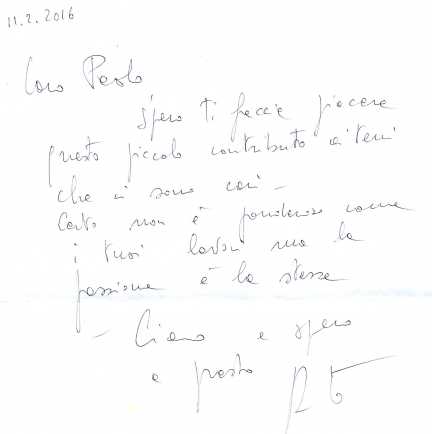 11.2.2016
Caro Paolo
Spero ti faccia piacere
questo piccolo contributo ai temi
che ci sono cari -
Certo non è ponderoso come
i tuoi lavori ma la
passione è la stessa
- Ciao e spero
a presto